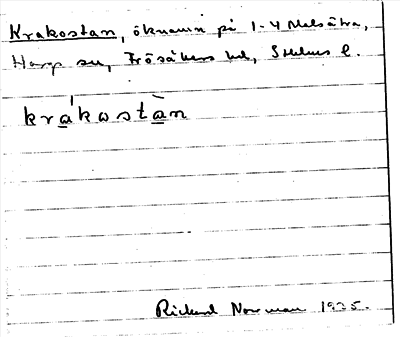 Krakostan, öknamn på 1-4 Melsätra,
Harg sn, Frösåkers hd, Sthlms l.
krákostàn
Rickard Norman 1935.